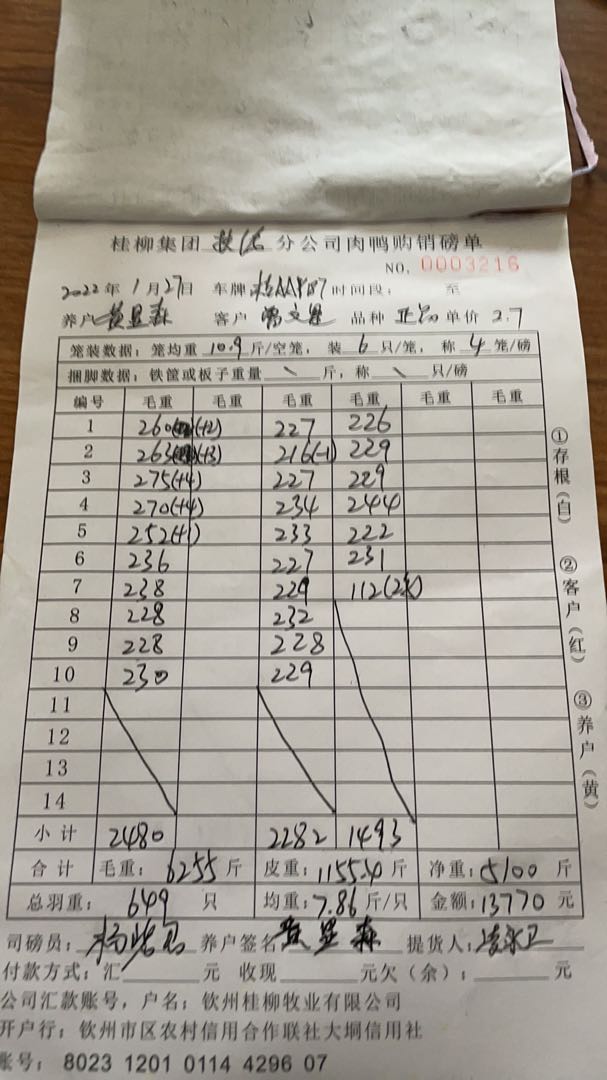 桂柳集团 分公司肉鸭购销磅单
NO. 0003216
2022年1月27日 车牌 时间段: 至
养户 黄显森 客户 品种 单价 2.7
笼装数据: 笼均重 10.9 斤/空笼, 装 6 只/笼, 称 4 笼/磅
捆脚数据: 铁筐或板子重量 \ 斤, 称 \ 只/磅
编号 毛重 毛重 毛重 毛重 毛重 毛重
1 260 (+2) 227 226
2 263 (+3) 216(-1) 229
3 275(+4) 227 229
4 270(+4) 234 244
5 252(+1) 233 222
6 236 227 231
7 238 229 112(2)
8 228 232
9 228 228
10 230 229
11
12
13
14
小计 2480 2282 1493
合计 毛重: 6255 斤 皮重: 1155.4 斤 净重: 5100 斤
总羽重: 649 只 均重: 7.86 斤/只 金额: 13770 元
司磅员: 养户签名 黄显森 提货人:
付款方式: 汇 元 收现 元欠(余): 元
公司汇款账号, 户名: 钦州桂柳牧业有限公司
开户行: 钦州市区农村信用合作联社大垌信用社
账号: 8023 1201 0114 4296 07
①存根(白)
②客户(红)
③养户(黄)